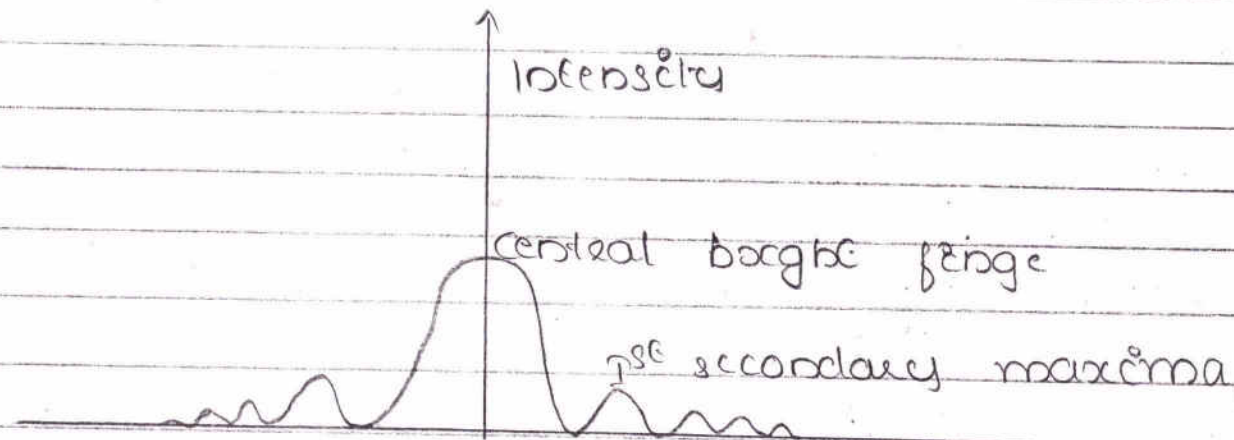 Intensity
Central bright fringe
1st secondary maxima